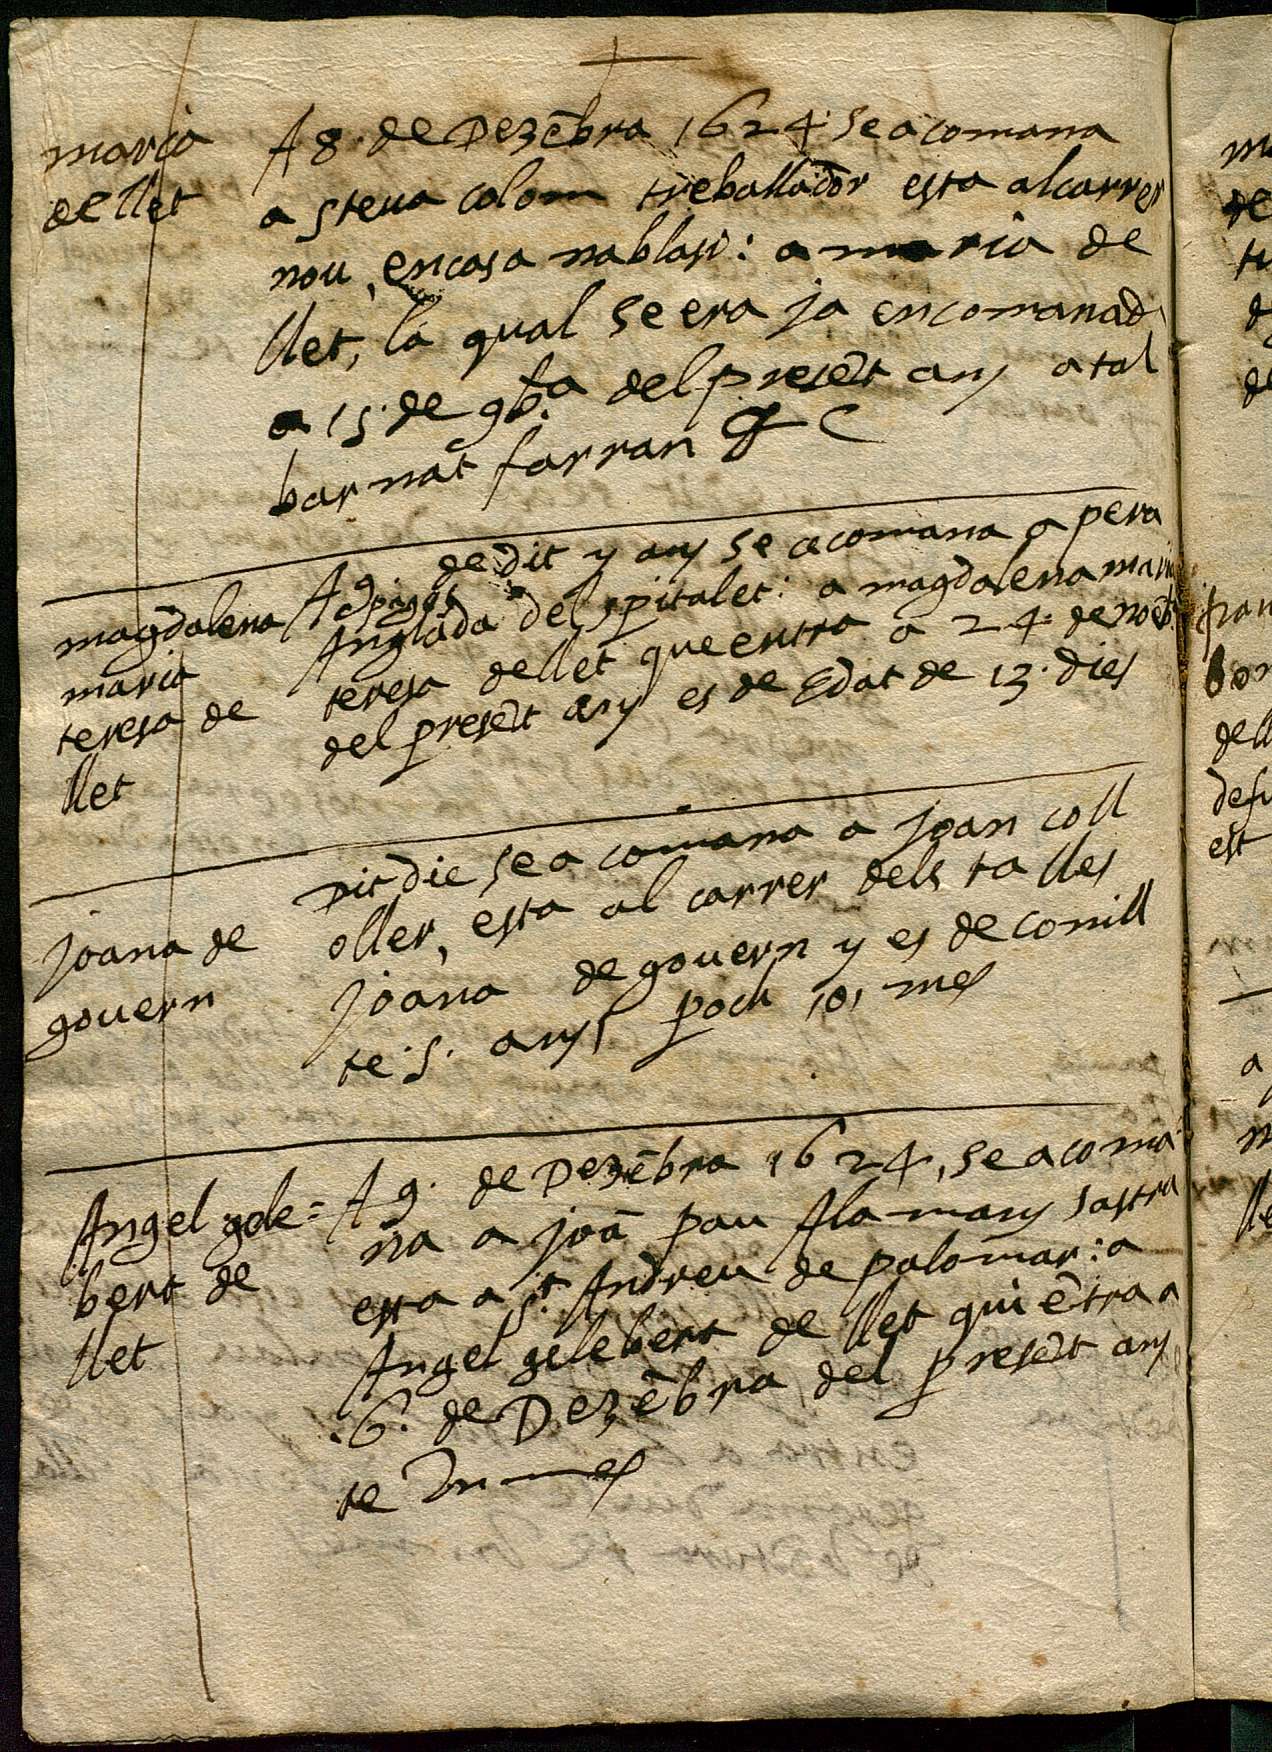 maria
de llet
A 8. de Dezẽbra 1624 se acomana
a steua colom treballador esta alcarrer
nou, encasa nablasi: a maria de
llet, la qual se era ja encomanada
a 15. de 9b.ª del presẽt any a tal
barnat farran &c
magdalena
maria
teresa de
llet
A 9. de dit y any se acomana a pera
Anglada pages del spitalet: a magdalena maria
teresa de llet que entra a 24. de noẽb.
del presẽt any es de Edat de 13. dies
joana de
gouern
Dit die se a comana a joan coll
oller, esta al carrer dels talles
joana de gouern y es de conill
te .5. anys poch 10, mes
Angel gele=
bert de
llet
A 9. de Dezẽbra 1624, se acoma
na a joã pau Alamany sastra
esta a S.t Andreu de palomar: a
Angel gelebert de llet qui ẽtra a
.6. de Dezẽbra del presẽt any
te Un mes